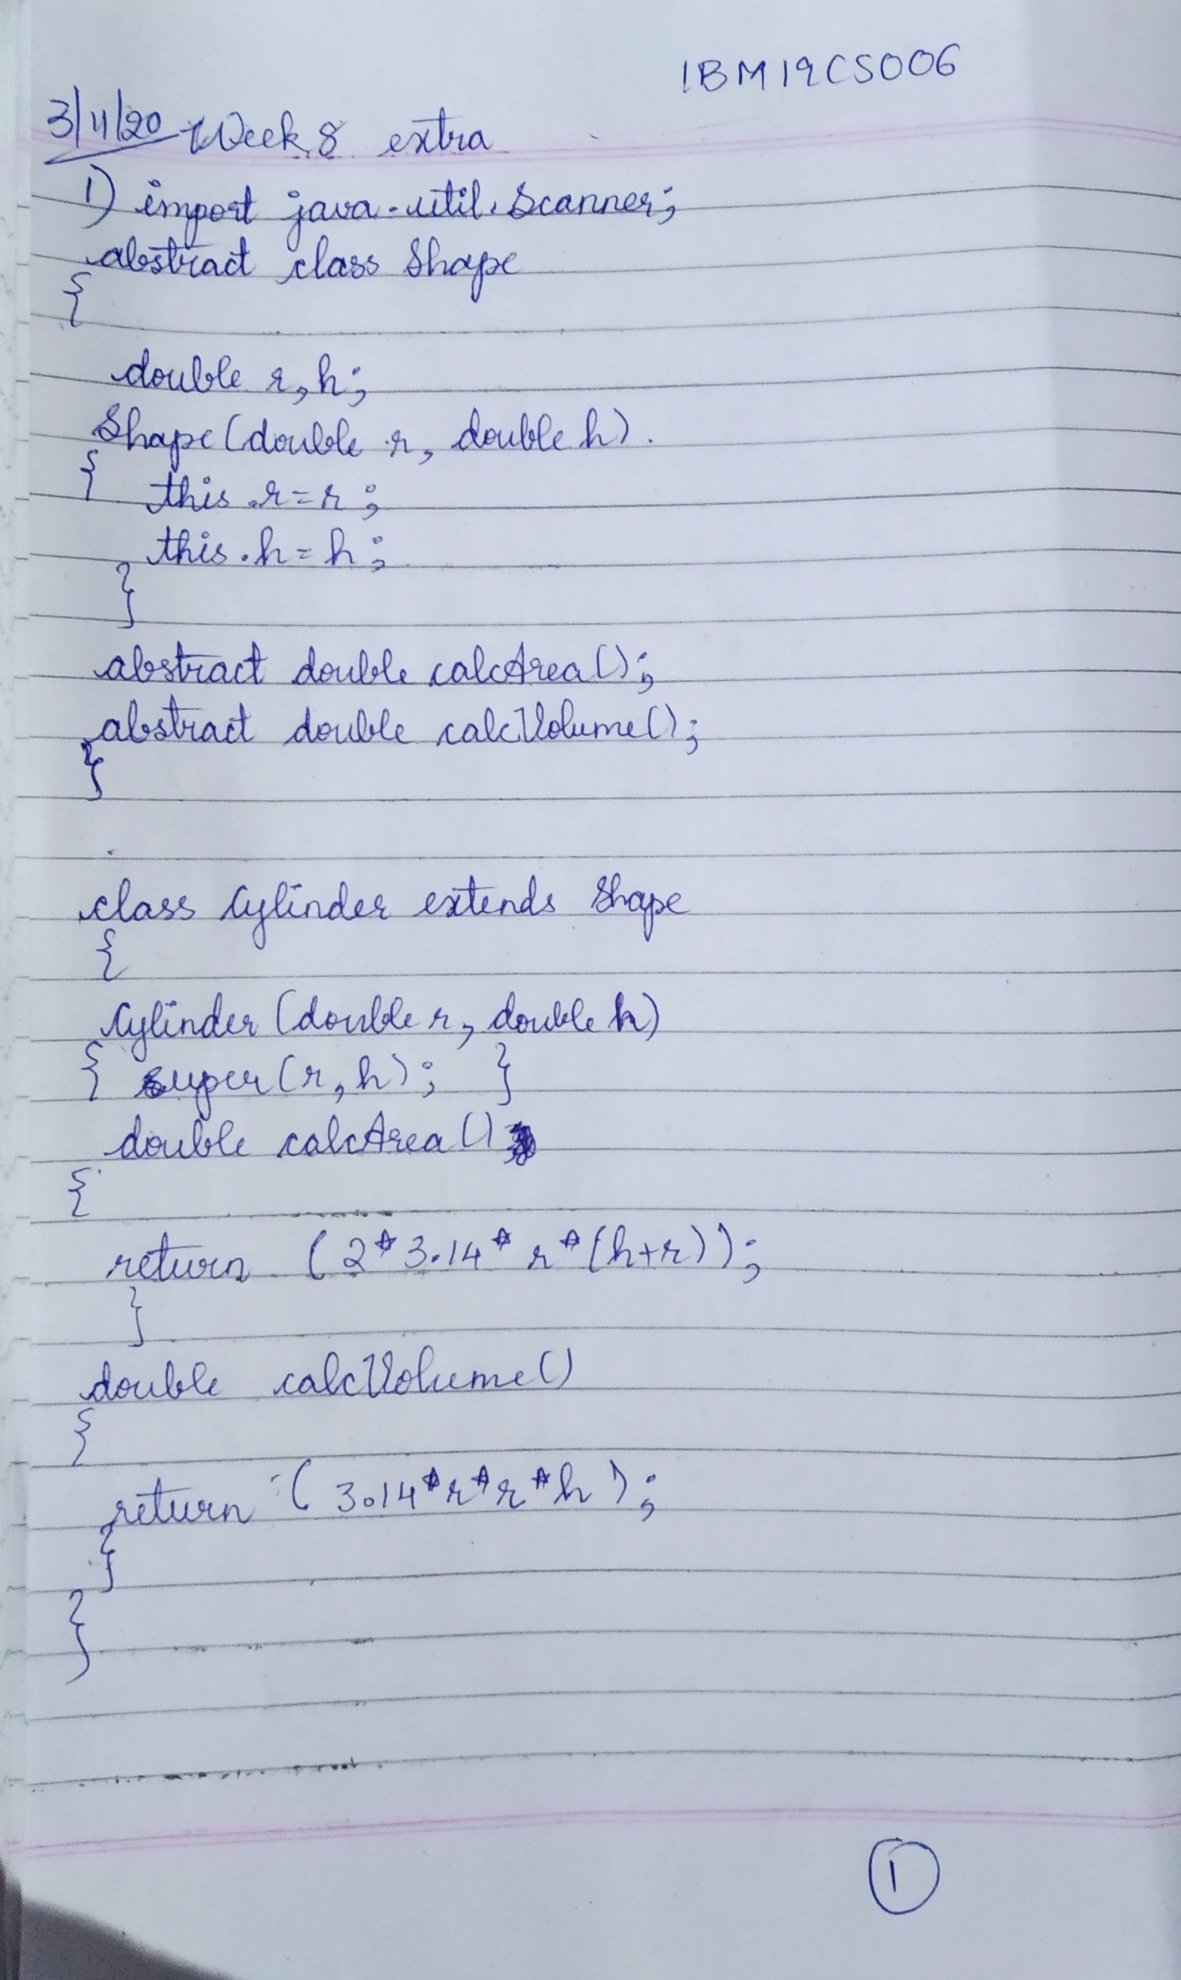 1BM19CS006
3/11/20 Week 8 extra
1) import java.util.Scanner;
abstract class Shape
{
double r,h;
Shape(double r, double h).
{ this.r=r;
this.h=h;
}
abstract double calcArea();
abstract double calcVolume();
}
class Cylinder extends Shape
{
Cylinder(double r, double h)
{ super(r,h); }
double calcArea()
{
return (2*3.14*r*(h+r));
}
double calcVolume()
{
return (3.14*r*r*h);
}
}
1